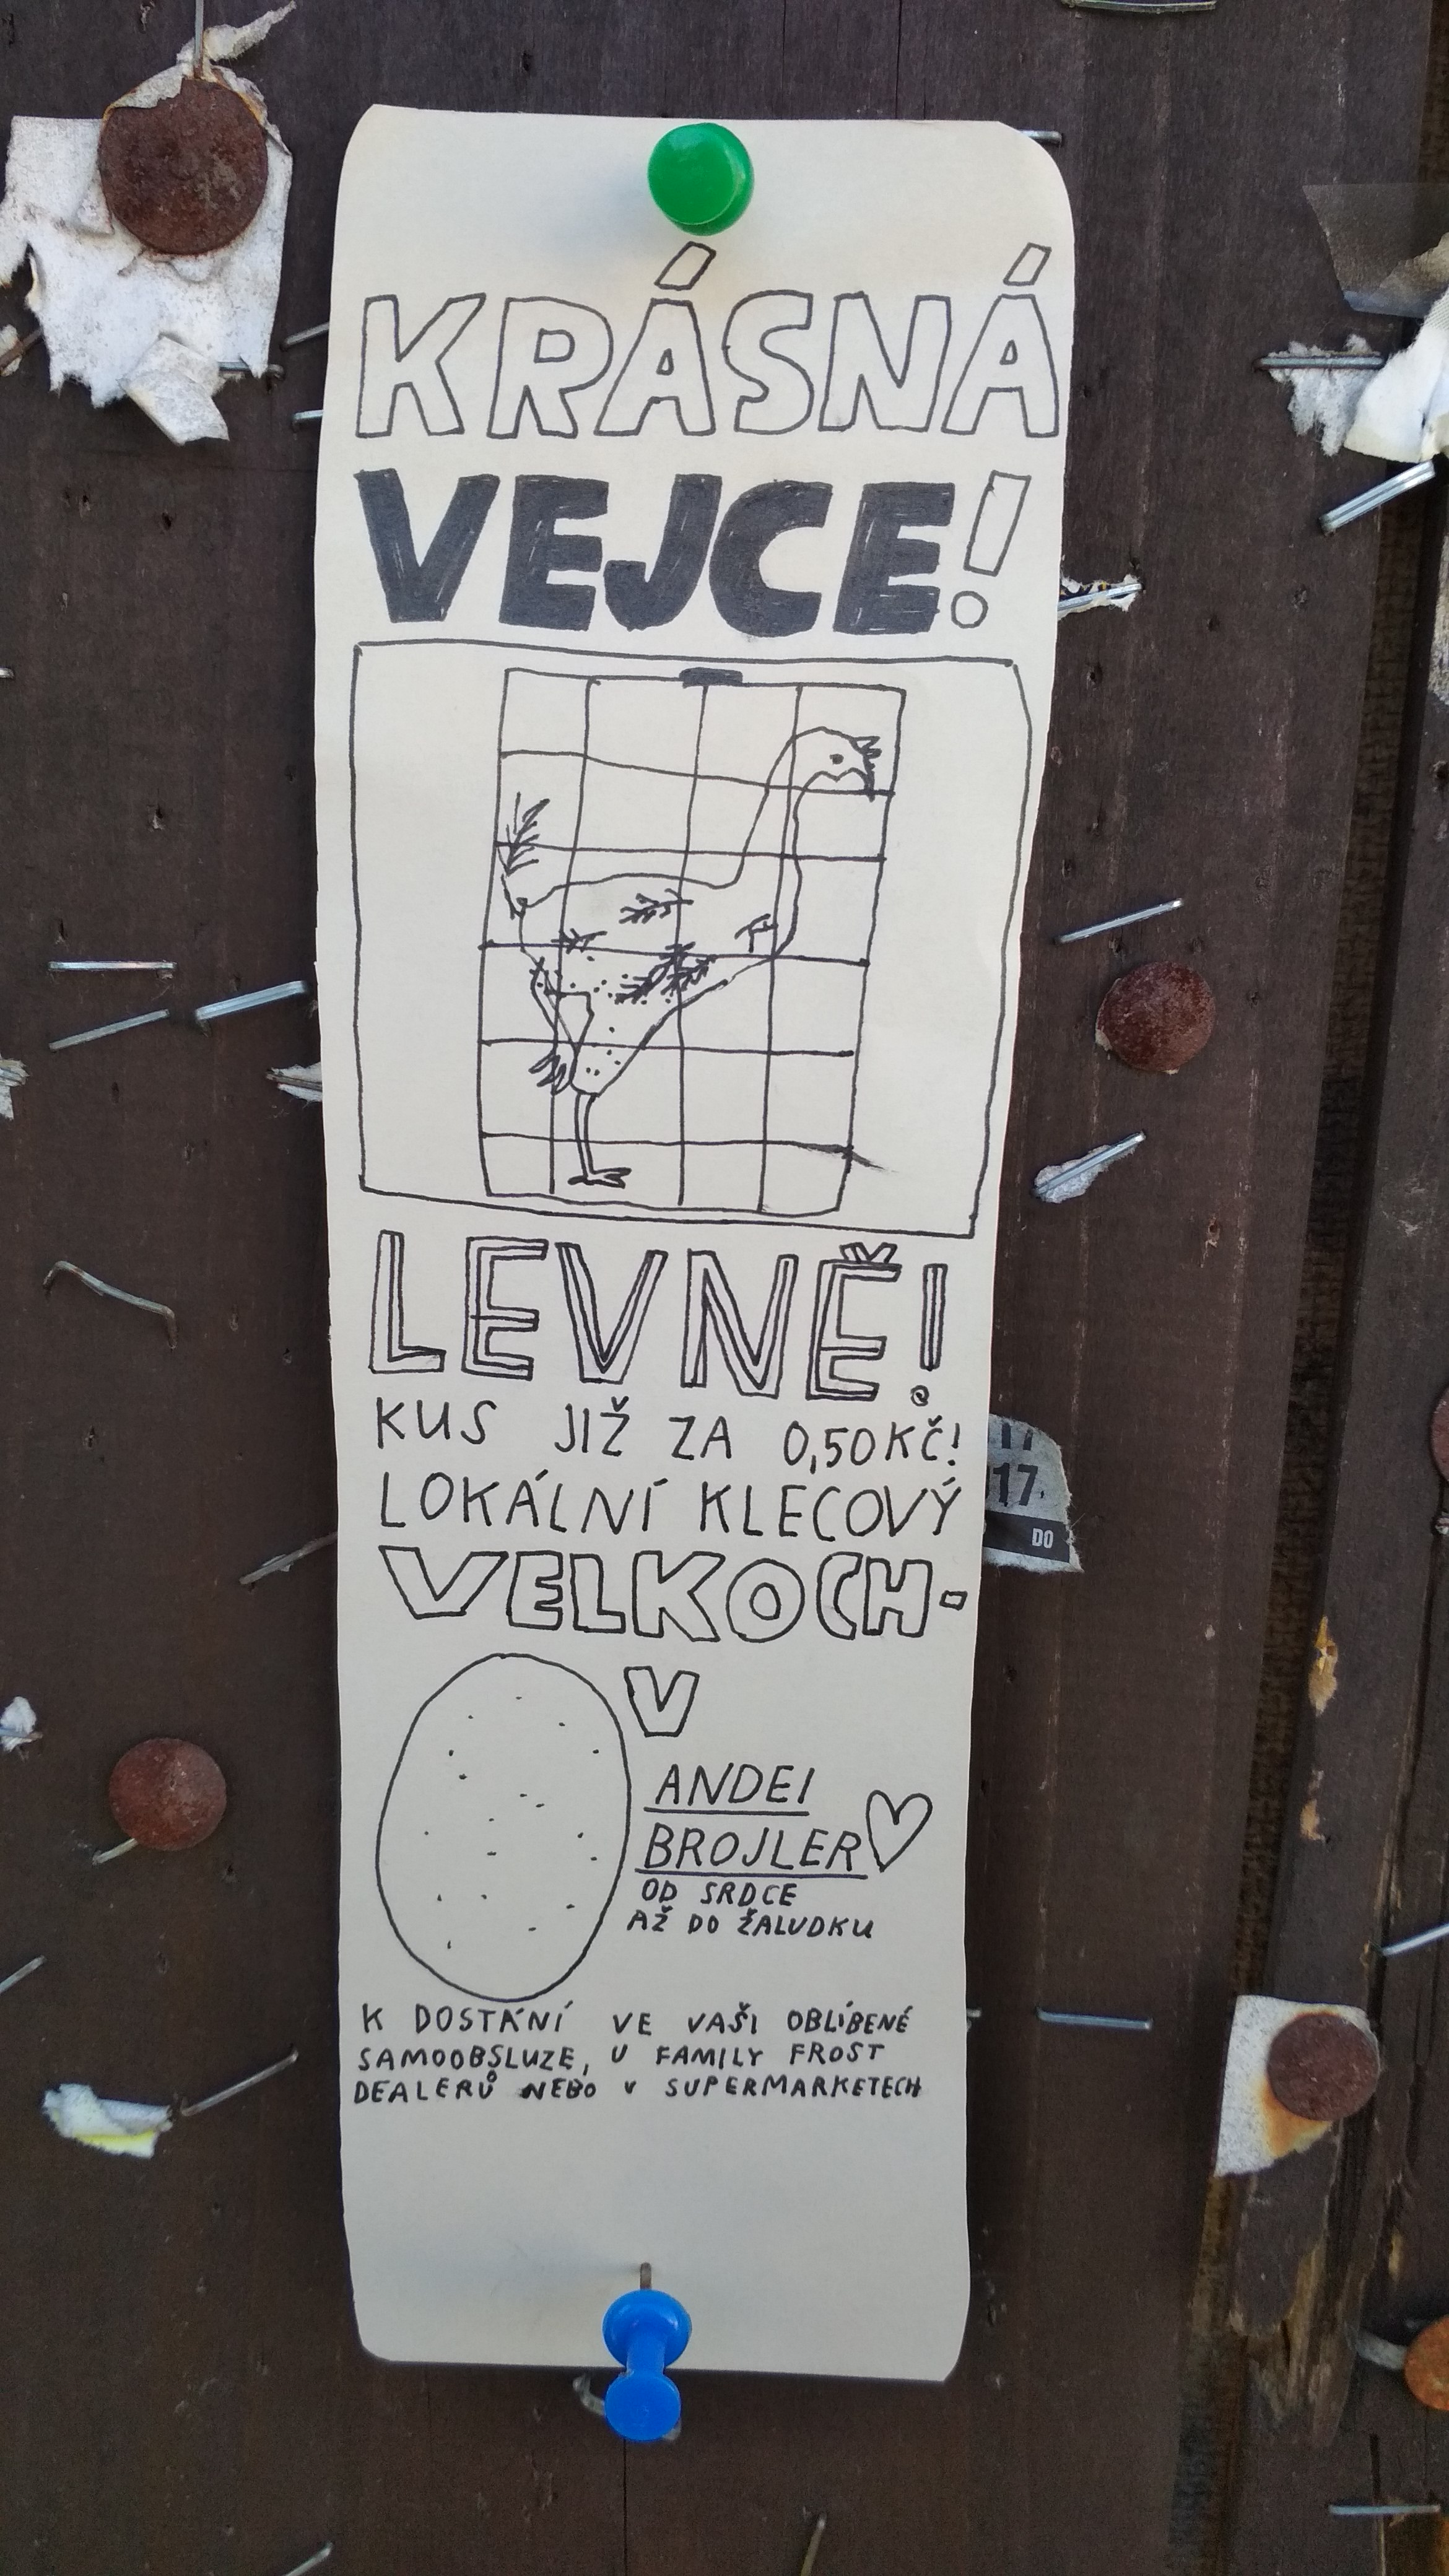 KRÁSNÁ
VEJCE!
LEVNĚ!
KUS JIŽ ZA 0,50 KČ!
LOKÁLNÍ KLECOVÝ
VELKOCH-
V
ANDEI
BROJLER
OD SRDCE
AŽ DO ŽALUDKU
K DOSTÁNÍ VE VAŠI OBLÍBENÉ
SAMOOBSLUZE, U FAMILY FROST
DEALERŮ NEBO V SUPERMARKETECH
17.
DO